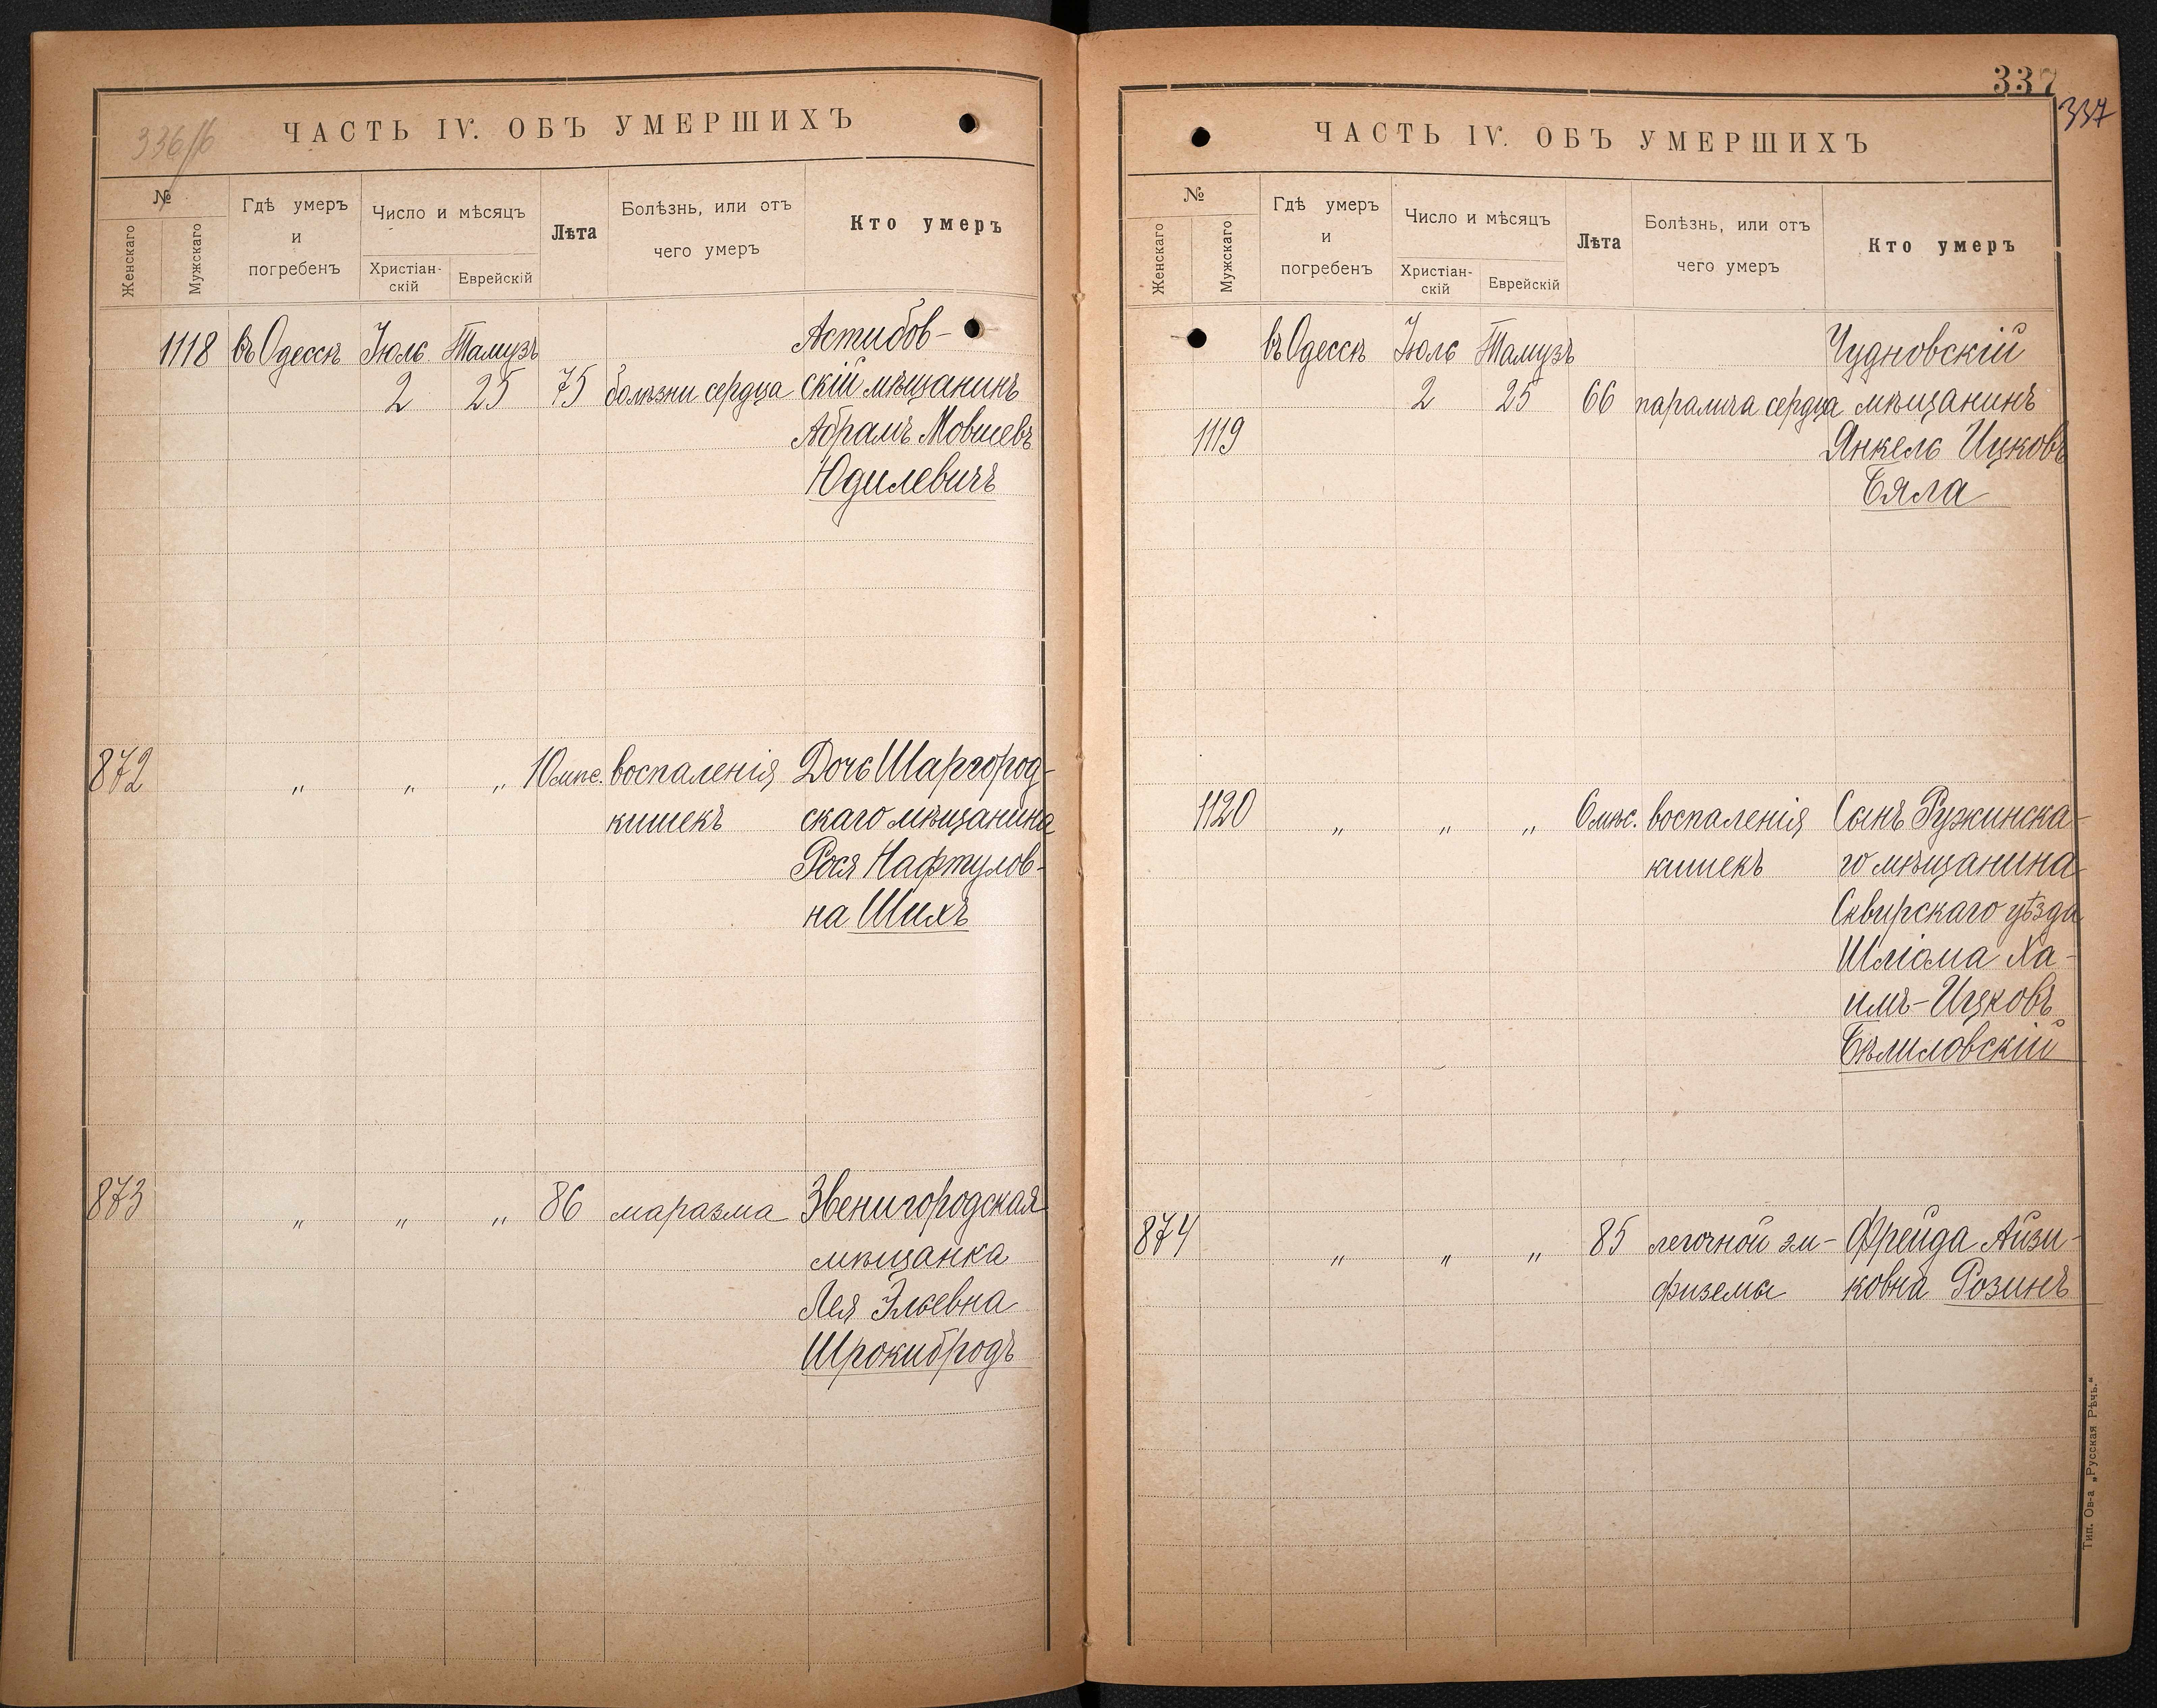 336/об
ЧАСТЬ IV. ОБЪ УМЕРШИХЪ
№
Женскаго
Мужскаго
Гдѣ умеръ и погребенъ
Число и мѣсяцъ
Христіан-
скій
Еврейскій
Лѣта
Болѣзнь, или отъ
чего умеръ
Кто умеръ
1118 въ Одессѣ Іюль Тамузъ Астибов-
2 25 75 болѣзни сердца скій мѣщанинъ
Абрамъ Мовшевъ
Юдилевичъ
872 " " " 10 мѣс. воспаленія Дочь Шаргород-
кишекъ скаго мѣщанина
Рося Нафтулов-
на Шихъ
873 " " " 86 маразма Звенигородская
мѣщанка
Лея Эльевна
Шрокибродъ
337
337
ЧАСТЬ IV. ОБЪ УМЕРШИХЪ
№
Женскаго
Мужскаго
Гдѣ умеръ и погребенъ
Число и мѣсяцъ
Христіан-
скій
Еврейскій
Лѣта
Болѣзнь, или отъ
чего умеръ
Кто умеръ
въ Одессѣ Іюль Тамузъ Чудновскій
2 25 66 паралича сердца мѣщанинъ
1119 Янкель Ицковъ
Бяла
1120 " " " 6 мѣс. воспаленія Сынъ Ружинска-
кишекъ го мѣщанина
Сквирскаго уѣзда
Шліома Ха-
имъ-Ицковъ
Бѣлиловскій
874 " " " 85 легочной эм- Фрейда Айзи-
физемы ковна Розинъ
Тип. Ов-а „Русская Рѣчь."